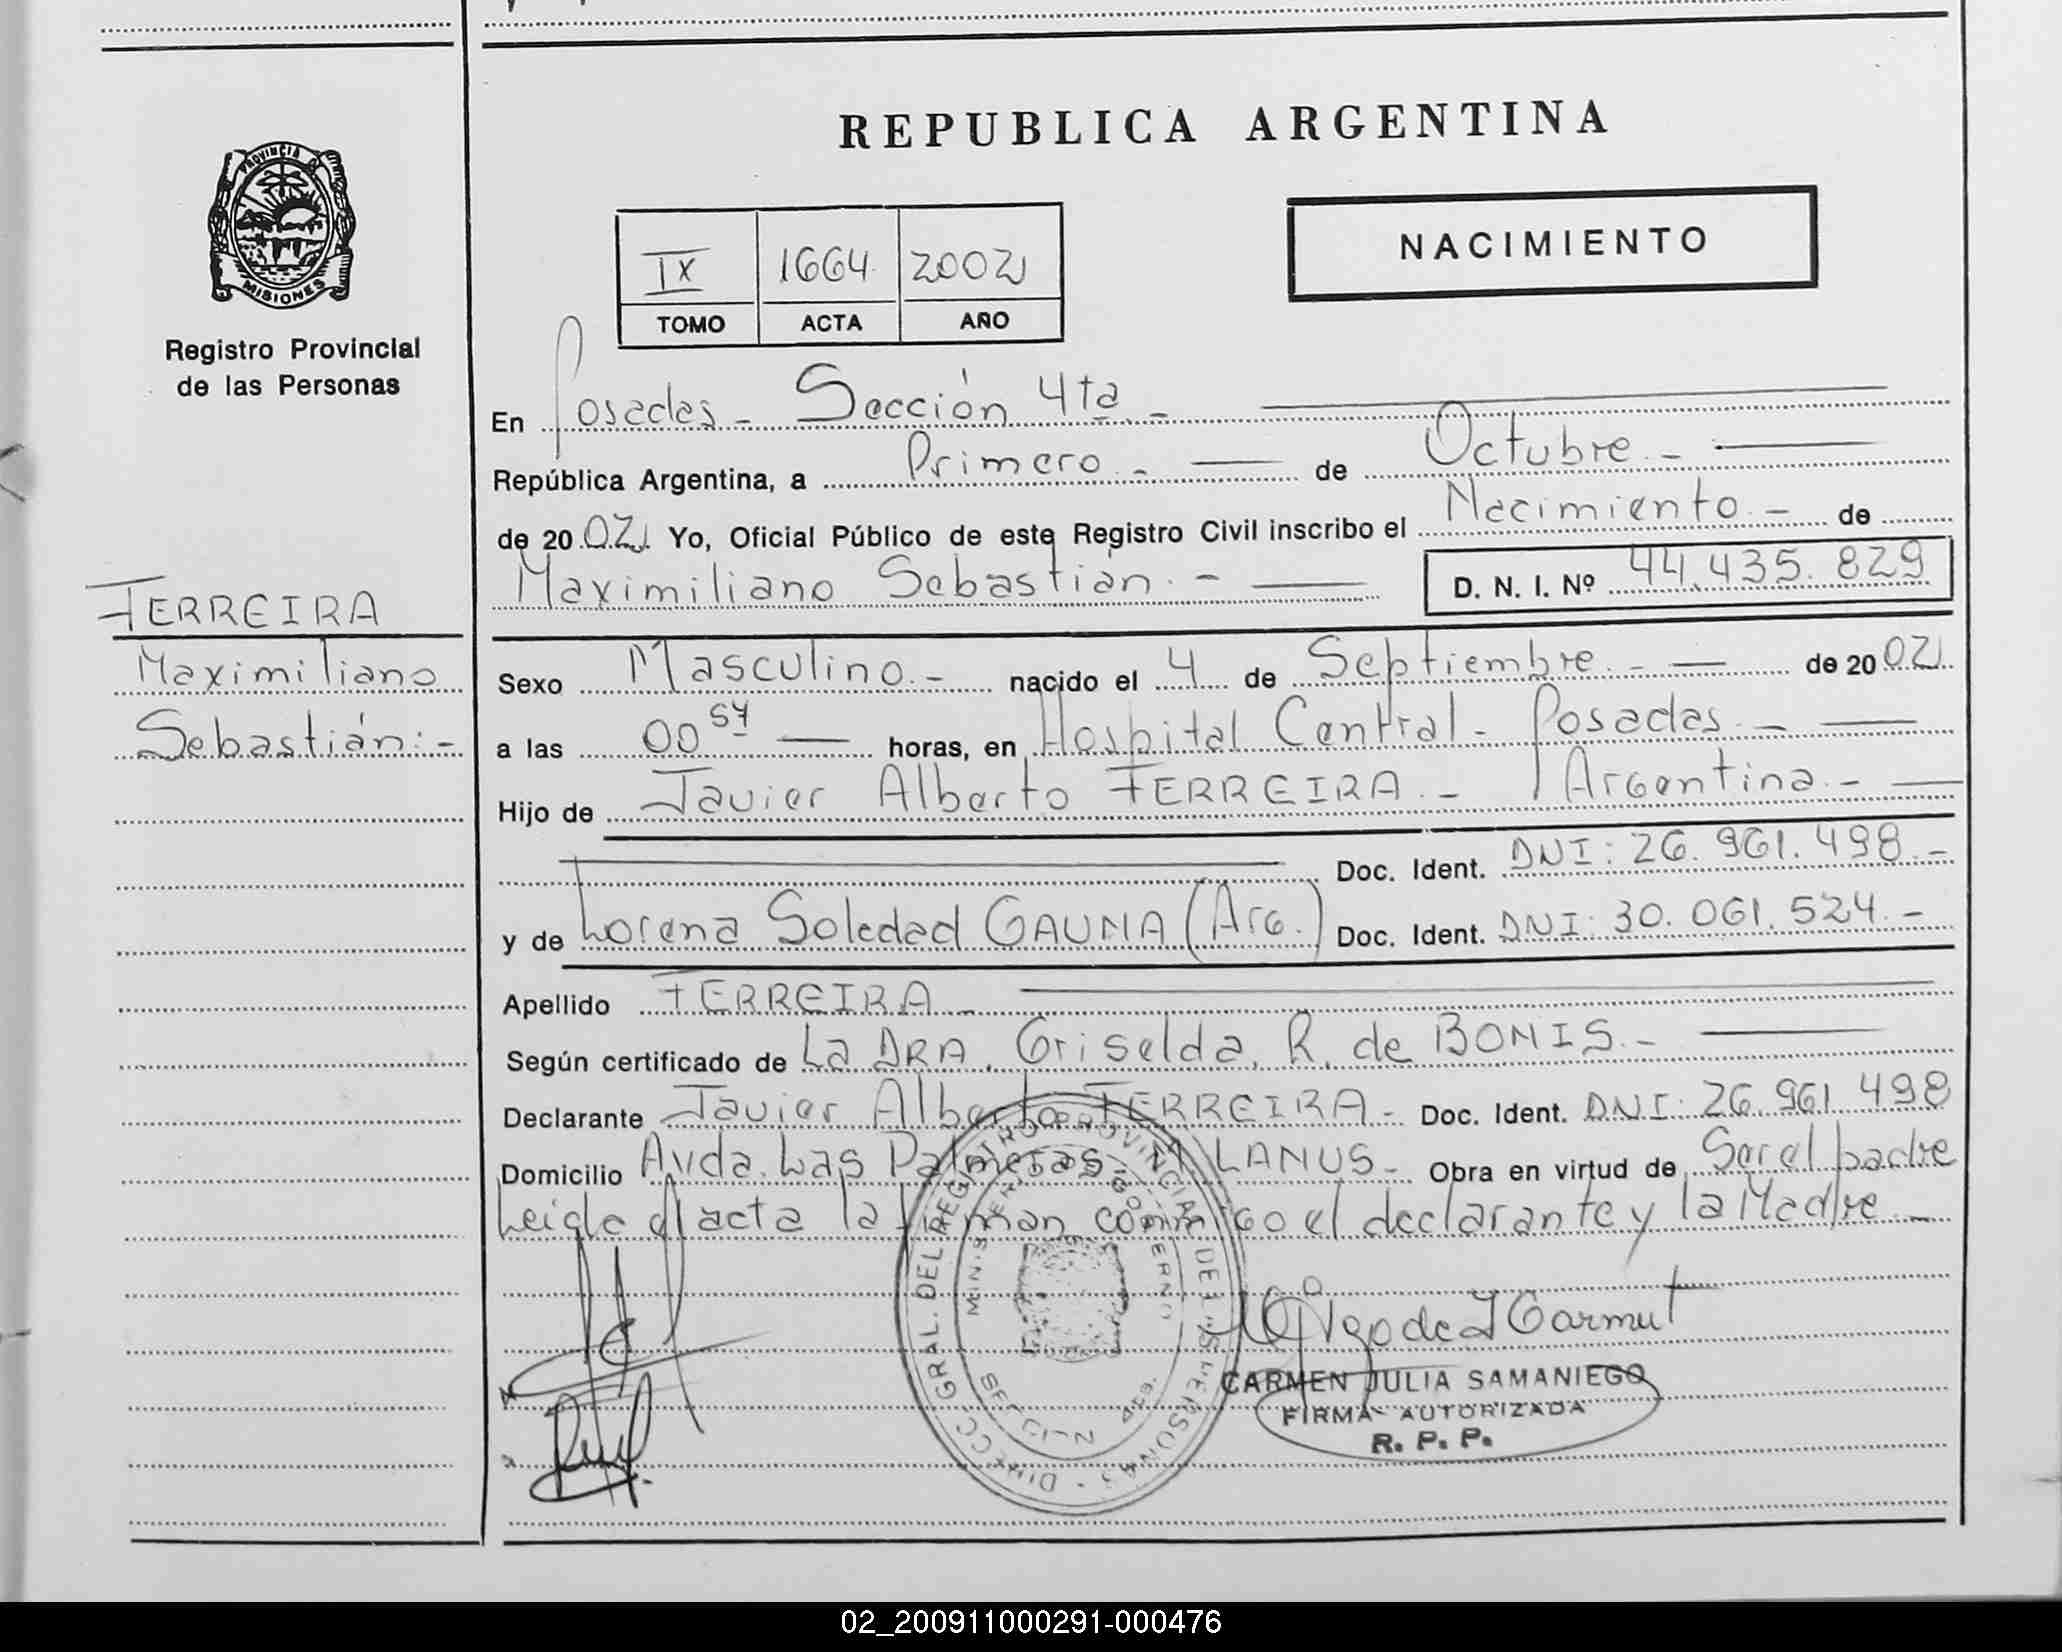 PROVINCIA D
MISIONES
Registro Provincial
de las Personas
FERREIRA
Maximiliano
Sebastián.-
REPUBLICA ARGENTINA
NACIMIENTO
IX 1664 2002
TOMO ACTA AÑO
En Posadas - Sección 4ta -
República Argentina, a Primero - de Octubre -
de 2002 Yo, Oficial Público de este Registro Civil inscribo el Nacimiento - de
Maximiliano Sebastián. - D. N. I. Nº 44.435.829
Sexo Masculino.- nacido el 4 de Septiembre.- de 2002
a las 00 54 horas, en Hospital Central - Posadas -
Hijo de Javier Alberto FERREIRA.- Argentina.-
Doc. Ident. DNI: 26.961.498.-
y de Lorena Soledad GAUNA (Arg.) Doc. Ident. DNI: 30.061.524.-
Apellido FERREIRA -
Según certificado de La DRA. Griselda R. de BONIS.-
Declarante Javier Alberto FERREIRA.- Doc. Ident. DNI: 26.961.498
Domicilio Avda. Las Palmeras - LANUS - Obra en virtud de Ser el padre
Leida el acta la firman conmigo el declarante y la Madre -
DIRECC. GRAL. DEL REGISTRO PROVINCIAL DE LAS PERSONAS
MINISTERIO GOBIERNO
CARMEN JULIA SAMANIEGO
FIRMA AUTORIZADA
R. P. P.
02_200911000291-000476